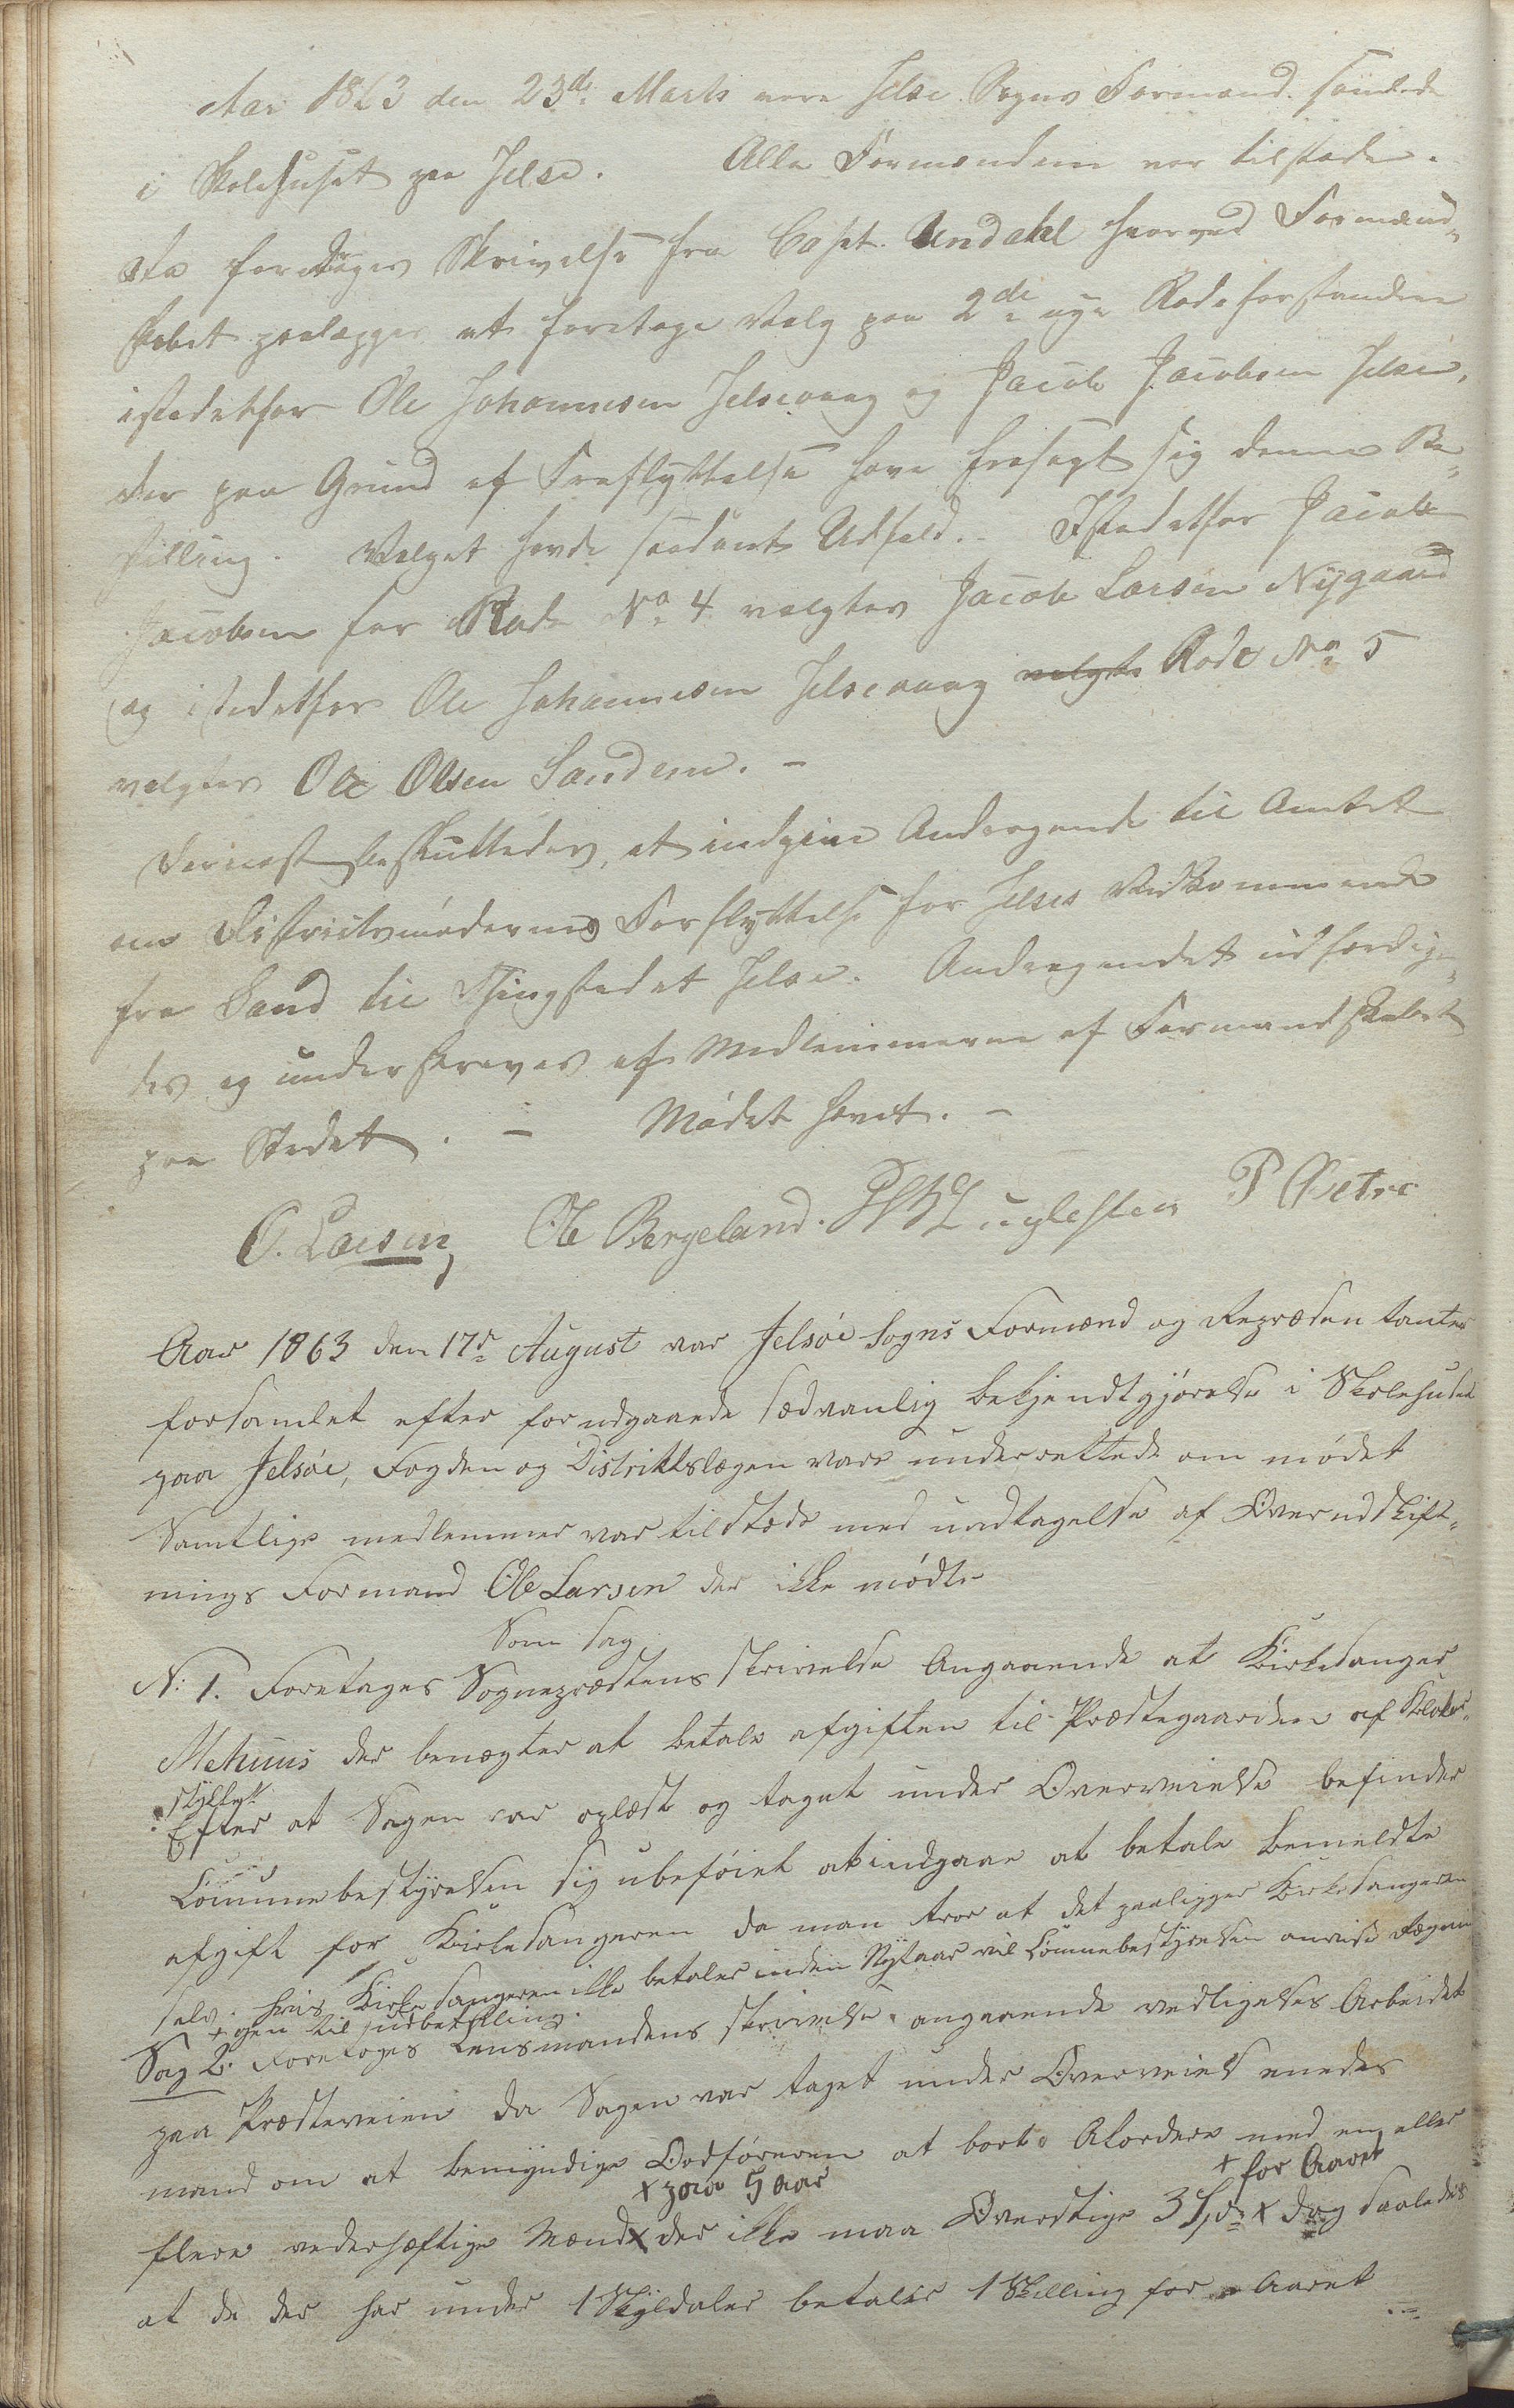 Aar 1863 den 23de Marts vare Jelse Sogns Formænd samlede
i Skolehuset paa Jelse. Alle Formændene var tilstæde.
Da foretoges Skrivelse fra Capt. Undahl hvorved Formænd„
skabet paalægges at foretage Valg paa 2de nye Rodeforstandere
istedetfor Ole Johannesen Jelsevaag og Jacob Jacobsen Jelse,
der paa Grund af Fraflyttelse have frasagt sig denne Be„
stilling. Valget havde saadant Udfald. Istedetfor Jacob
Jacobsen for Rode No 4 valgtes Jacob Larsen Nygaard
og istedetfor Ole Johannesen Jelsevaag valgte Rode No 5
valgtes Ole Olsen Sandem. –
Dernæst besluttedes, at indgive Andragende til Amtet
om Distriktsmødernes Forflyttelse for Jelses Vedkommende
fra Sand til Thingstedet Jelse. Andragendet udfærdige„
des og underskreves af Medlemmerne af Formandskabet
paa Stedet. – Mødet hævet. –
O. Larsen Ole Bergeland. P Øetre
Aar 1863 den 17de August var Jelsøe Sogns Formænd og Repræsentanter
forsamlet efter forudgaaende sædvanlig bekjendtgjørelse i Skolehuset
paa Jelsøe, Fogden og Distriktslægen vare underrettede om mødet
Samtlige medlemmer var tilstæde med undtagelse af Overudskift„
nings Formand Ole Larsen der ikke mødte
Som sag
N: 1. Foretages Sogneprestens skrivelse Angaaende at Kirkesanger
Mehuus der benægter at betale afgiften til Præstegaarden af Kloker„
stykket
Efter at Sagen var oplæst og taget under Overveielse befinder
Comunebestyrelsen sig ubeføiet at indgaae at betale bemeldte
afgift for Kirkesangeren da man tror at det paaligger Kirkesangeren
selv. hvis Kirkesangeren ikke betaler inden Nytaar vil Comunebestyrelsen anvise
+ gen til udbetalling.
Sag 2. Foretoges Lensmandens skrivelse angaaende vedligeholdelses Arbeidet
paa Præsteveien da Sagen var taget under Overveielse enedes
mand om at bemyndige Ordføreren at bort Akordere med en eller
x paa 5 Aar + for Aaret
flere vederhæftige Mænd x der ikke maa Overstige 3 Spd x dog saaledes
at de der har under 1 Skyldaler betaler 1 Skilling for Aaret